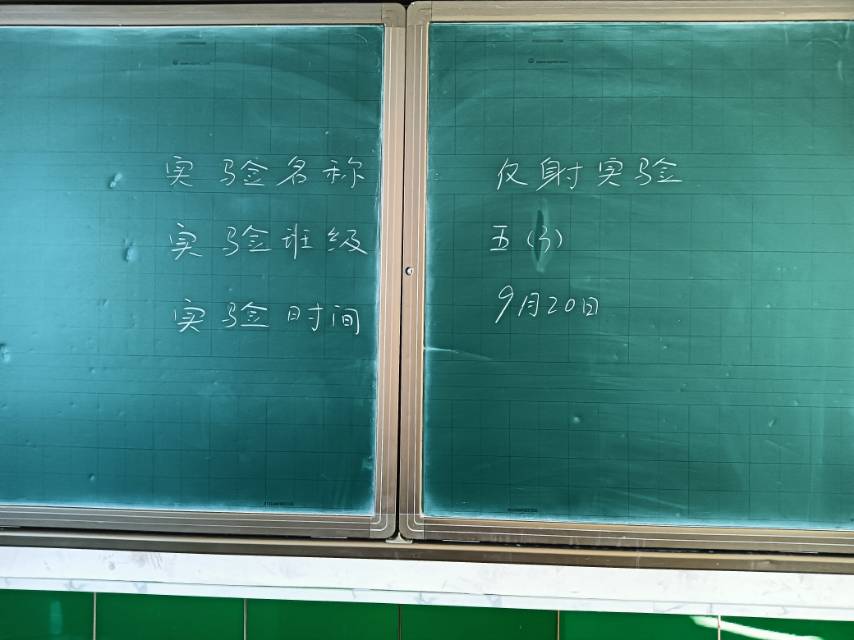 实验名称 反射实验
实验班级 五（3）
实验时间 9月20日